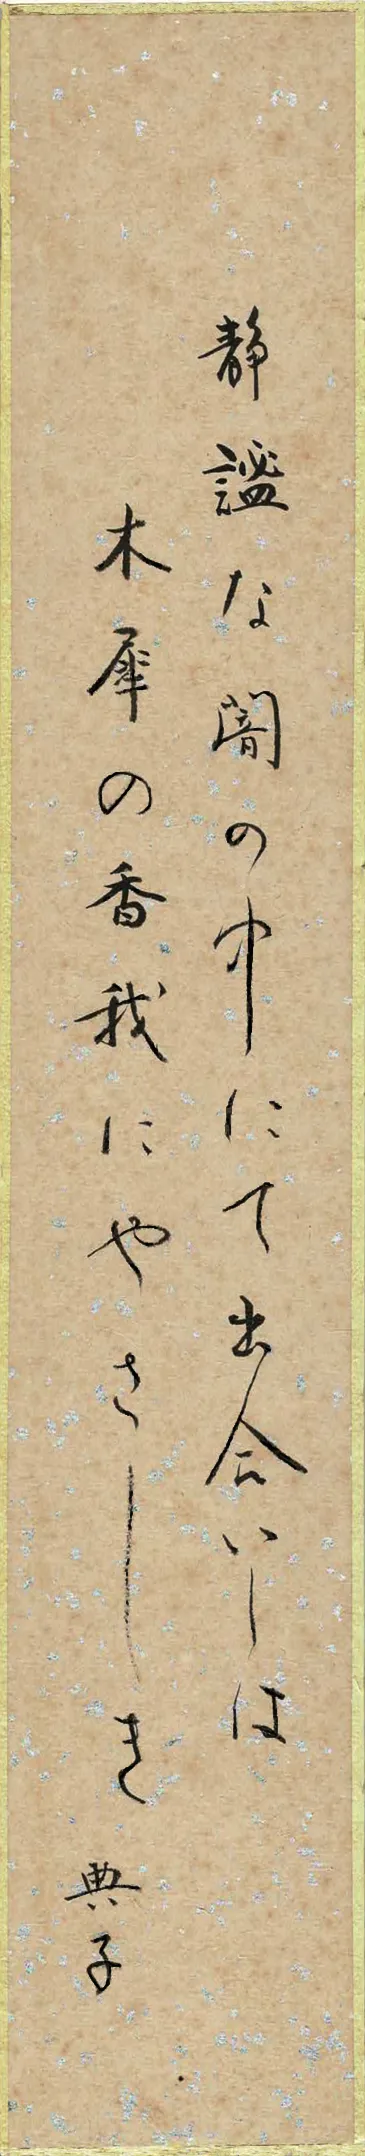 静謐な闇の中にて出合いしは
木犀の香我にやさしき
典子